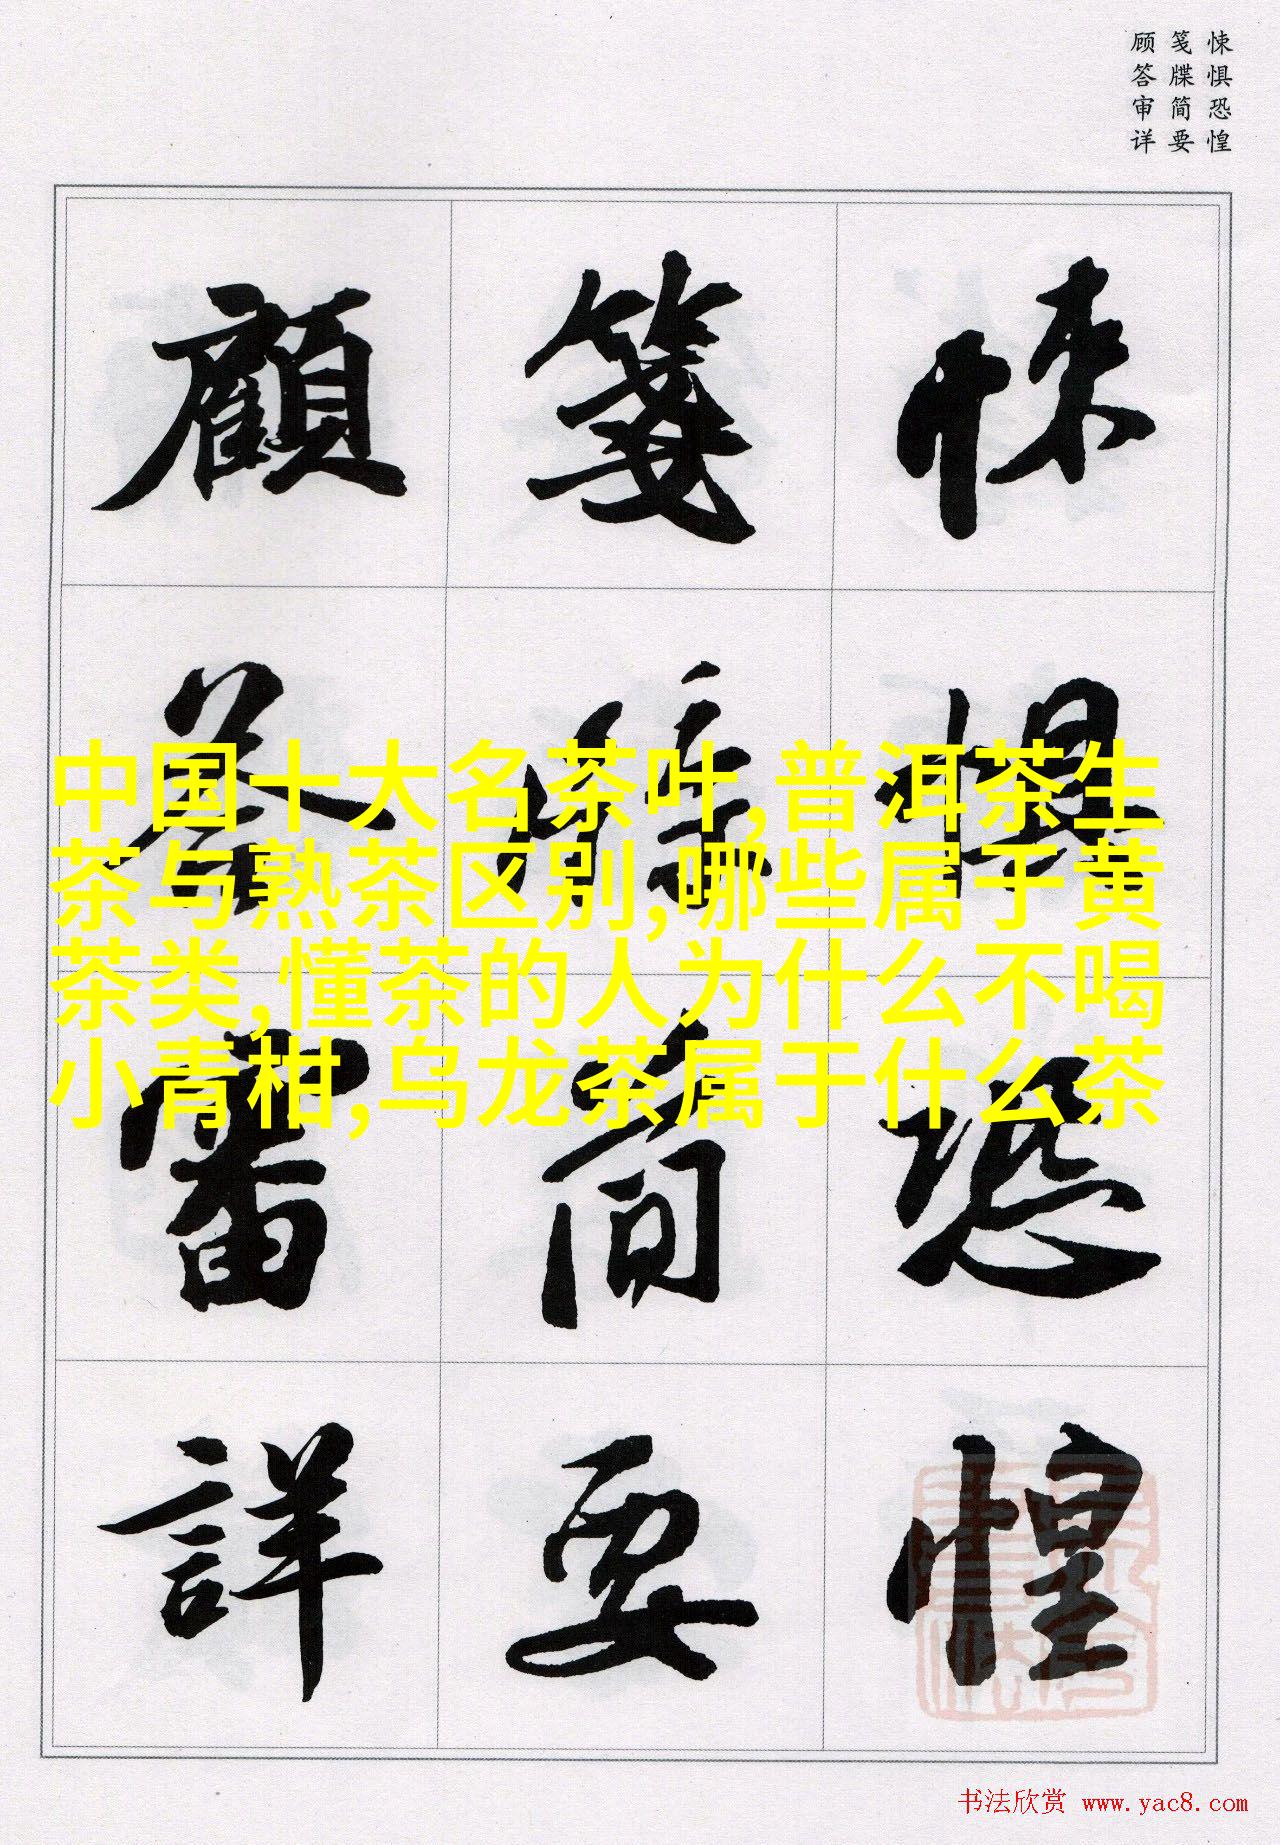 悚惧恐惶
笺牒简要
顾答审详
悚懼恐惶
箋牒簡要
顧答審詳
中国十大名茶叶,普洱茶生
茶与熟茶区别,哪些属于黄
茶类,懂茶的人为什么不喝
小青柑,乌龙茶属于什么茶
书法欣赏 www.yac8.com